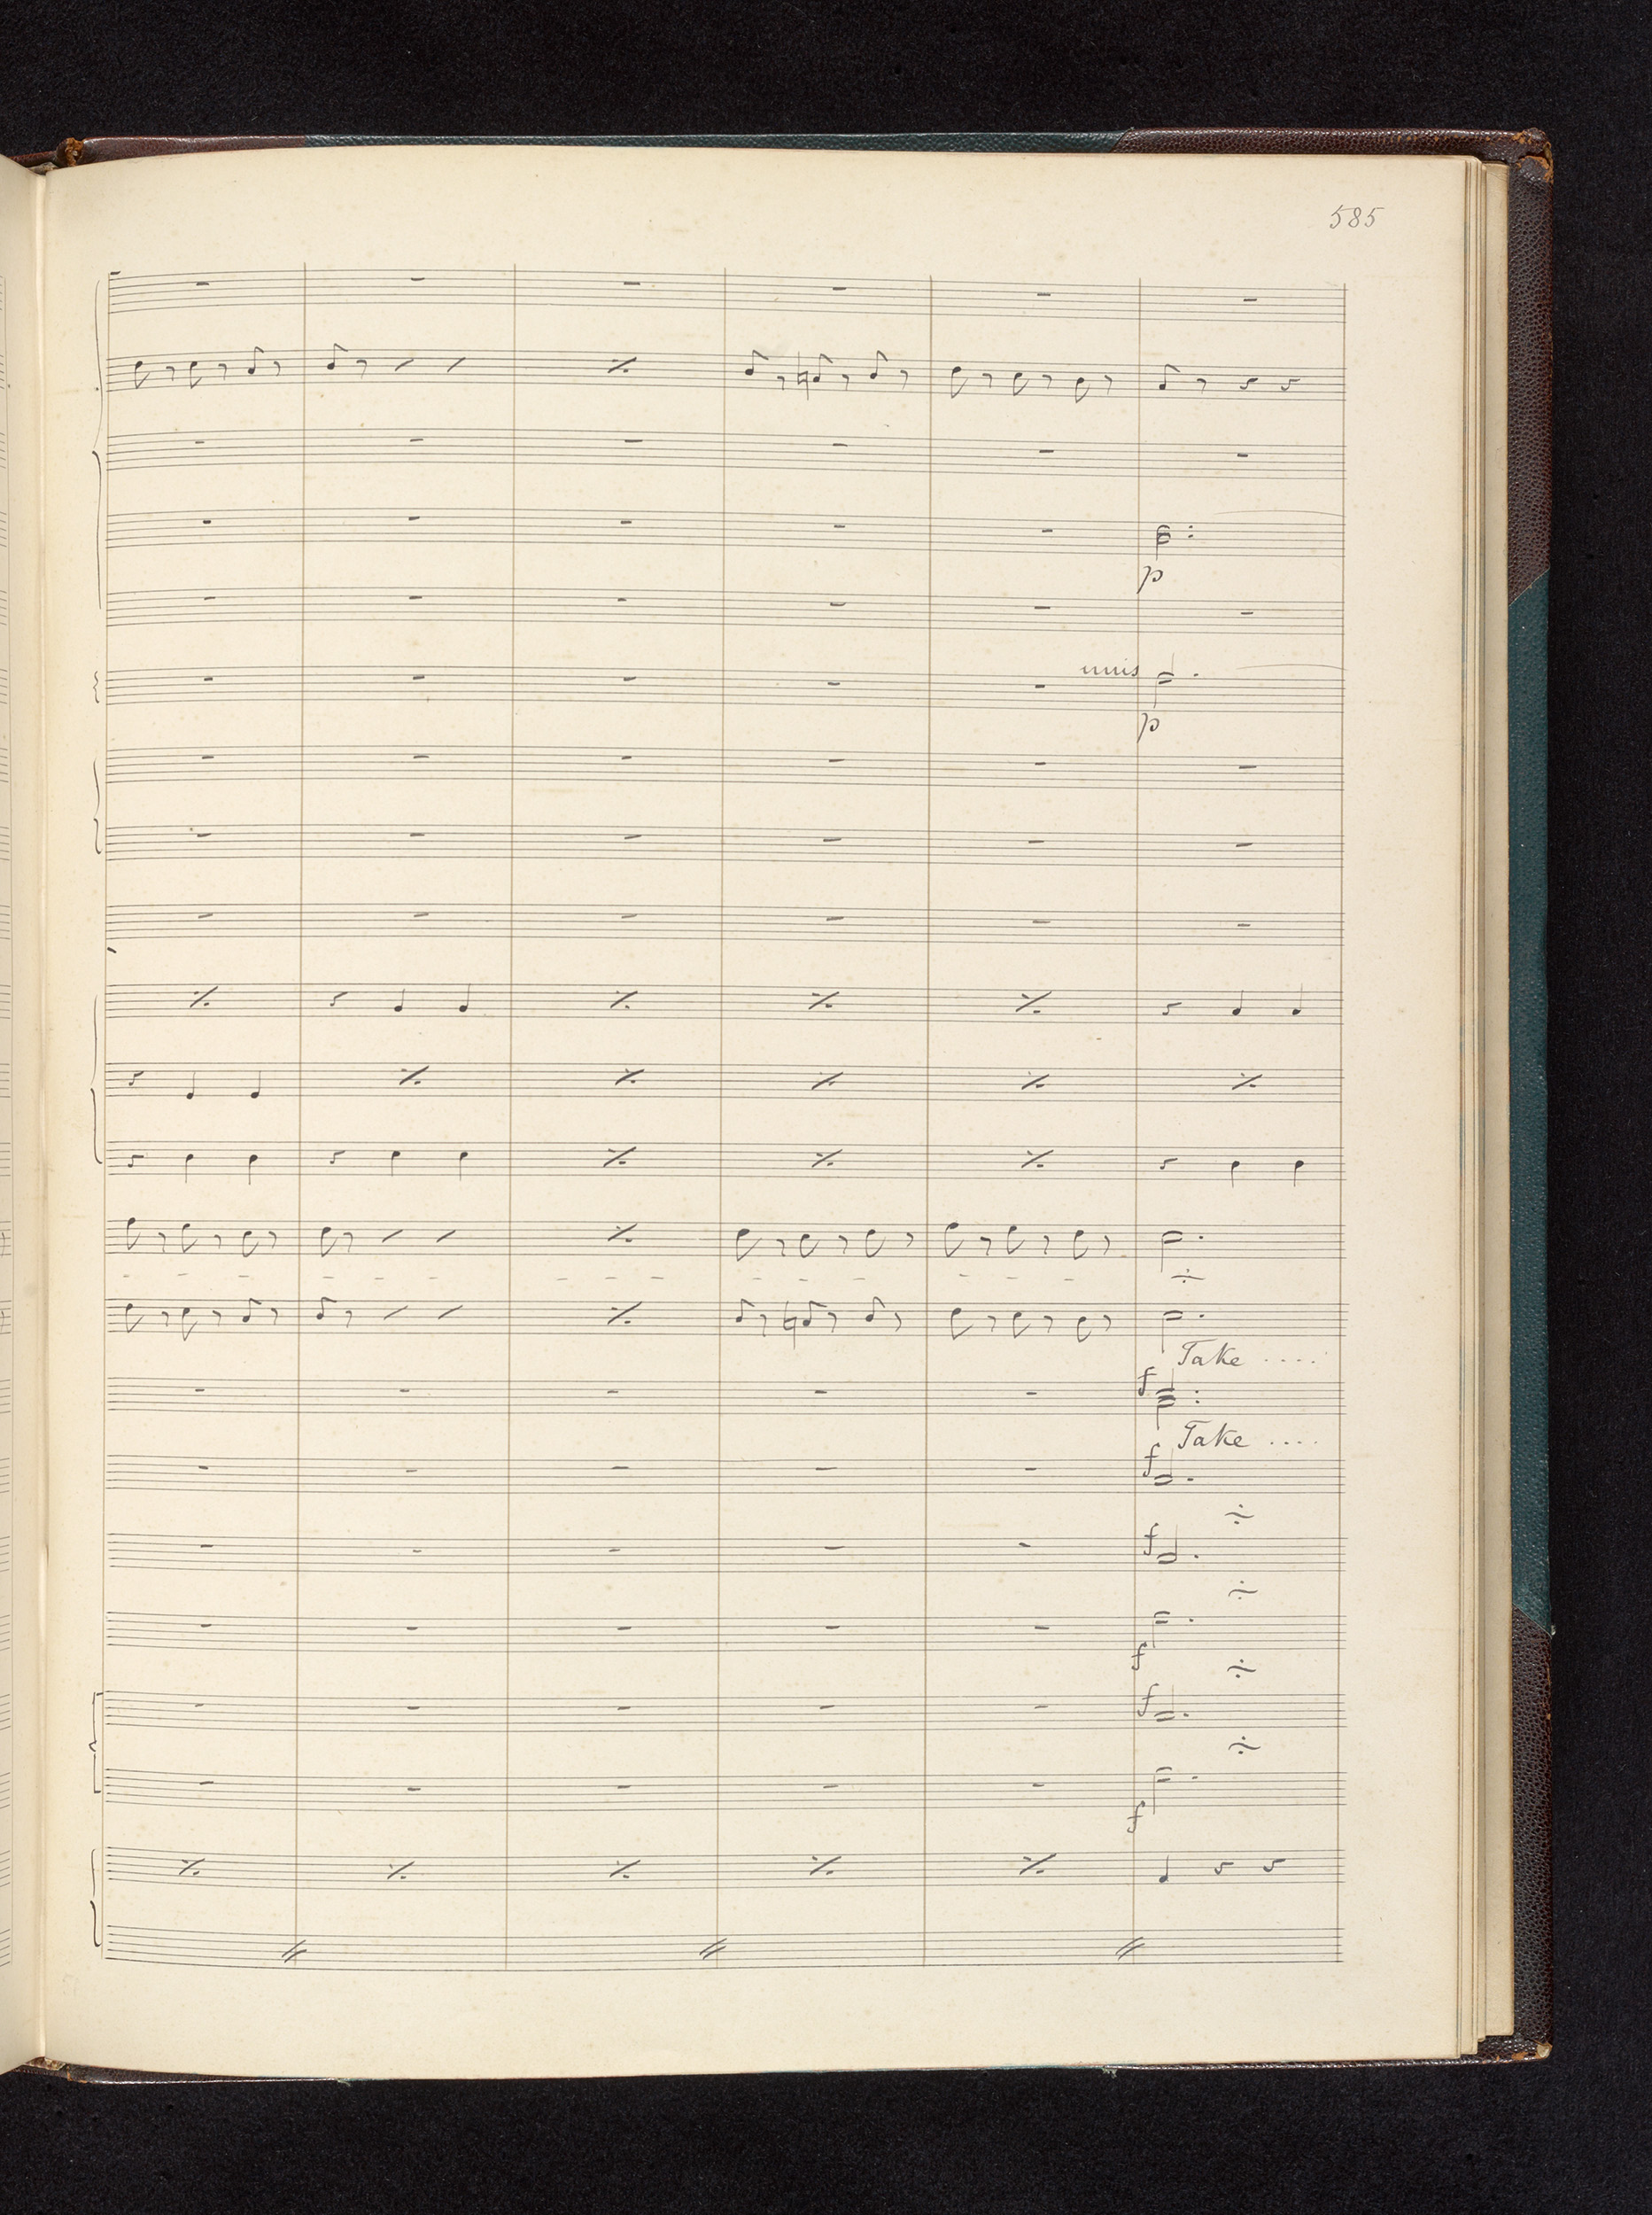 585
unis
p
p
Take ....
f
Take ....
f
f
f
f
f